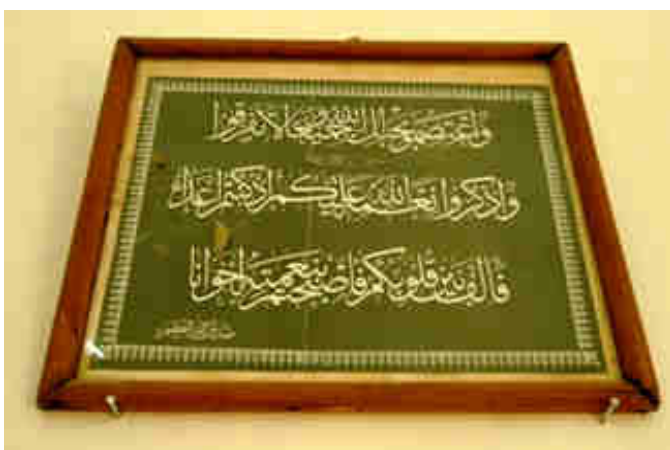 وَاعْتَصِمُوا بِحَبْلِ اللَّهِ جَمِيعًا وَلَا تَفَرَّقُوا
وَاذْكُرُوا نِعْمَةَ اللَّهِ عَلَيْكُمْ إِذْ كُنْتُمْ أَعْدَاءً
فَأَلَّفَ بَيْنَ قُلُوبِكُمْ فَأَصْبَحْتُمْ بِنِعْمَتِهِ إِخْوَانًا